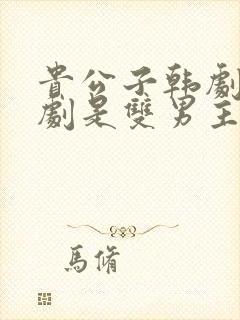 貴公子韩劇
劇是雙男主
馬脩